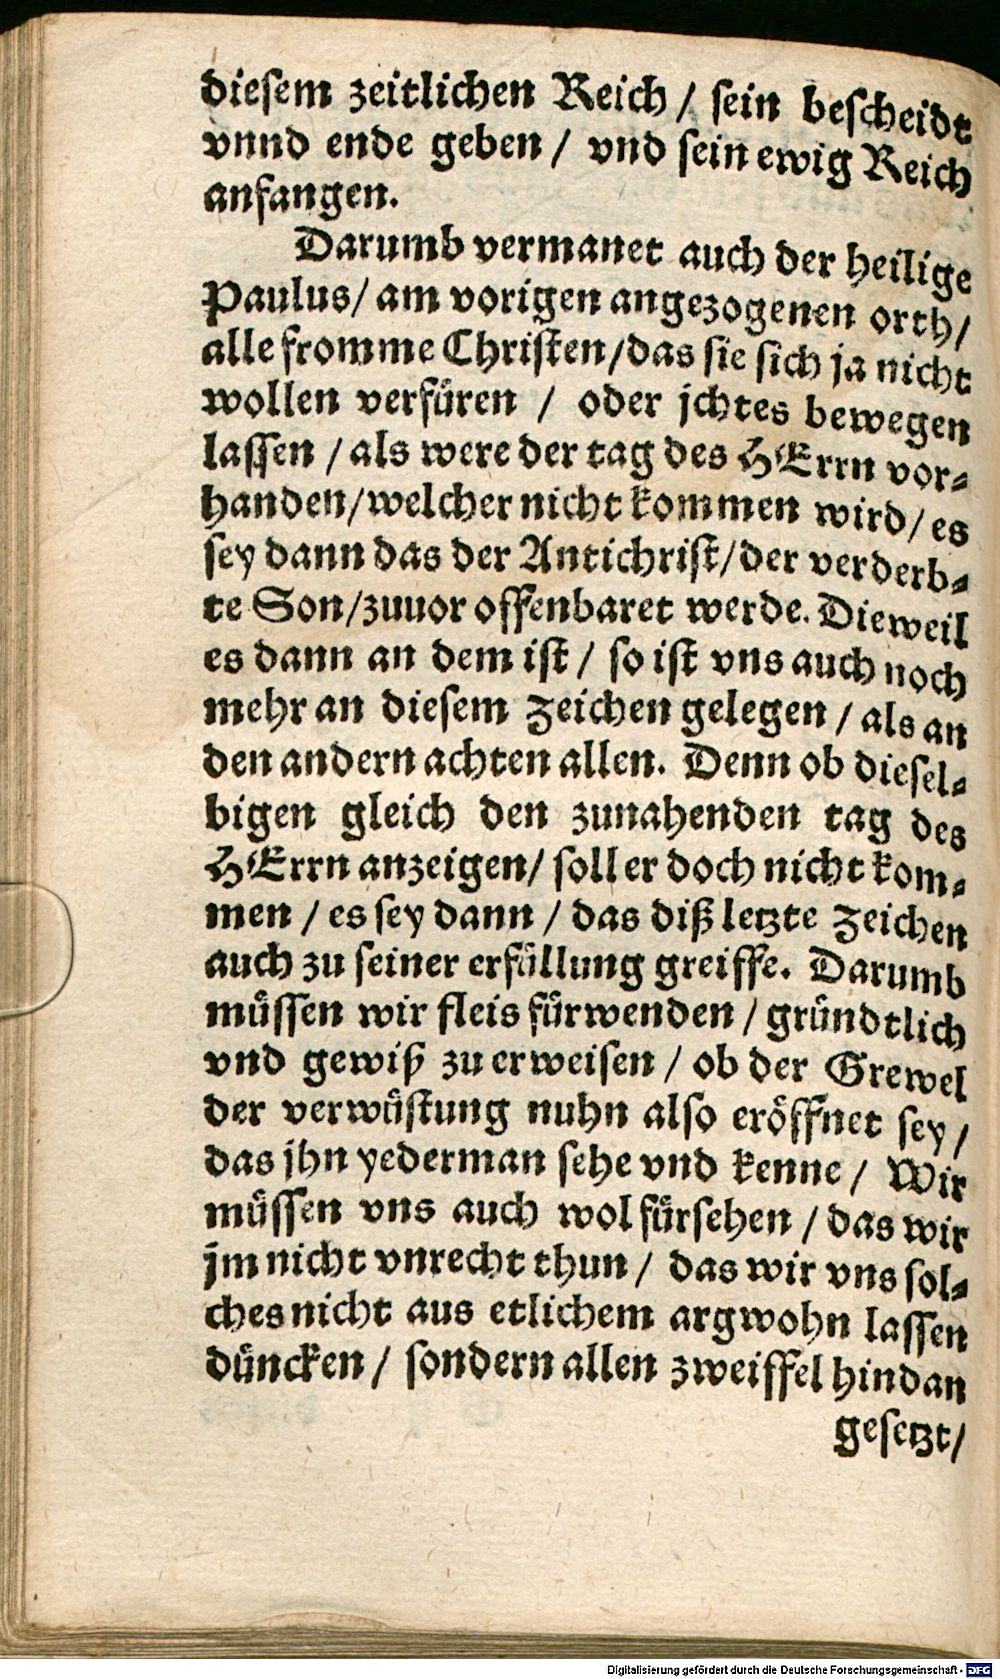 diesem zeitlichen Reich / sein bescheidt
vnnd ende geben / vnd sein ewig Reich
anfangen.
Darumb vermanet auch der heilige
Paulus / am vorigen angezogenen orth /
alle fromme Christen / das sie sich ja nicht
wollen verfüren / oder jchtes bewegen
lassen / als were der tag des HErrn vor-
handen / welcher nicht kommen wird / es
sey dann das der Antichrist / der verderb-
te Son / zuuor offenbaret werde. Dieweil
es dann an dem ist / so ist vns auch noch
mehr an diesem Zeichen gelegen / als an
den andern achten allen. Denn ob diesel-
bigen gleich den zunahenden tag des
HErrn anzeigen / soll er doch nicht kom-
men / es sey dann / das diß letzte Zeichen
auch zu seiner erfüllung greiffe. Darumb
müssen wir fleis fürwenden / gründtlich
vnd gewiß zu erweisen / ob der Grewel
der verwüstung nuhn also eröffnet sey /
das jhn yederman sehe vnd kenne / Wir
müssen vns auch wol fürsehen / das wir
jm nicht vnrecht thun / das wir vns sol-
ches nicht aus etlichem argwohn lassen
düncken / sondern allen zweiffel hindan
gesetzt /
Digitalisierung gefördert durch die Deutsche Forschungsgemeinschaft - DFG